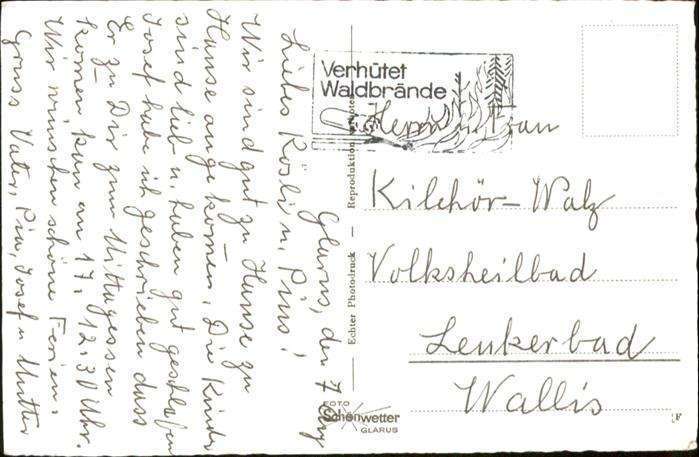 Glarus, den 7. Aug
Liebes Rösli u. Pius!
Wir sind gut zu Hause zu
Hause angekommen. Die Kinder
sind lieb u. haben gut geschlafen
Josef habe ich geschrieben dass
Er zu Dir zum Mittagessen
kom̄en kan am 17. 12.30 Uhr.
Wir wünschen schöne Ferien.
Gruss Vater, Pia, Josef u Mutter
Verhütet
Waldbrände
Herrn u. Frau
Kilchör-Walz
Volksheilbad
Leukerbad
Wallis
Echter Photodruck — Reproduktion
FOTO
Schönwetter
GLARUS